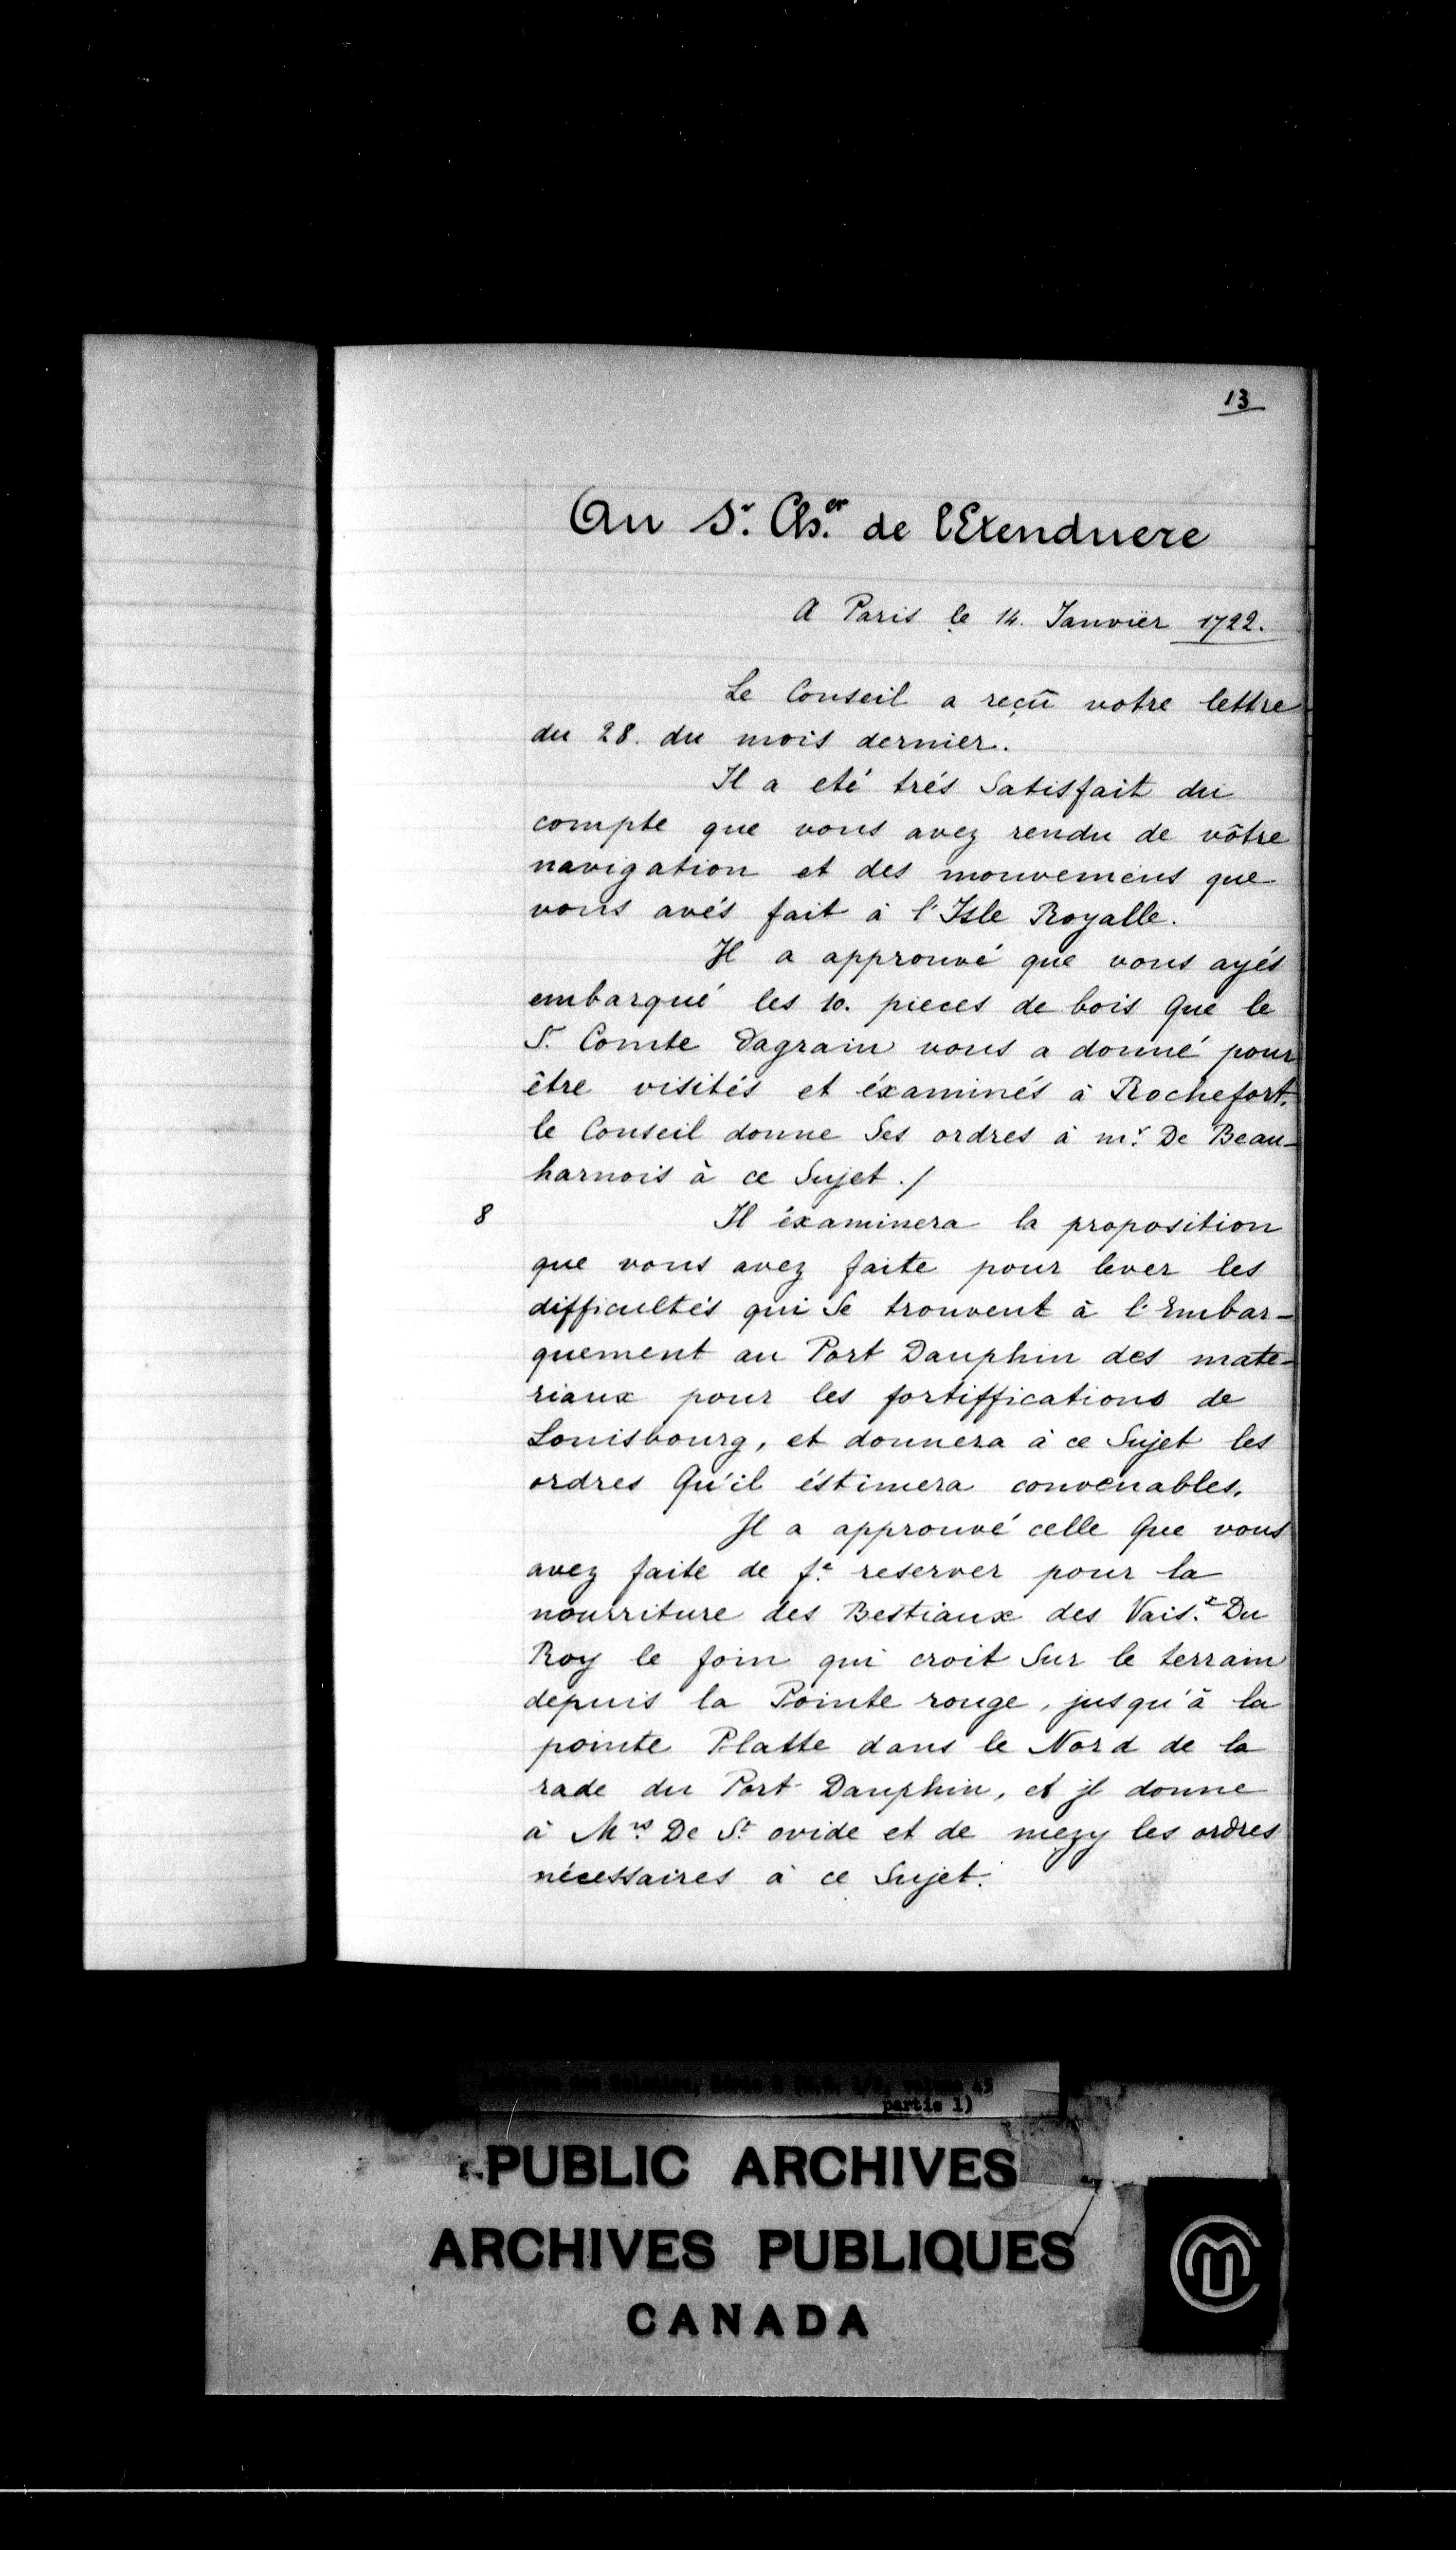 13
Au Sr. Cher. de l'Etenduere
A Paris le 14. Janvier 1722.
Le Conseil a reçû votre lettre
du 28. du mois dernier.
Il a eté trés Satisfait du
compte que vous avez rendu de vôtre
navigation et des mouvemens que
vous avés fait à l'Isle Royalle.
Il a approuvé que vous ayés
embarqué les 10. pieces de bois Que le
S. Comte Dagrain vous a donné pour
être visités et éxaminés à Rochefort.
le Conseil donne Ses ordres à mr. De Beau-
harnois à ce Sujet ./
8 Il éxaminera la proposition
que vous avez faite pour lever les
difficultés qui Se trouvent à l'Embar-
quement au Port Dauphin des mate-
riaux pour les fortiffications de
Louisbourg, et donnera à ce Sujet les
ordres Qu'il éstimera convenables.
Il a approuvé celle Que vous
avez faite de fe. reserver pour la
nourriture des Bestiaux des Vais.x Du
Roy le foin qui croit Sur le terrain
depuis la Pointe rouge, jusqu'à la
pointe Platte dans le Nord de la
rade du Port Dauphin, et jl donne
à Mrs. De St. ovide et de mezy les ordres
nécessaires à ce Sujet.
partie 1)
PUBLIC ARCHIVES
ARCHIVES PUBLIQUES
CANADA